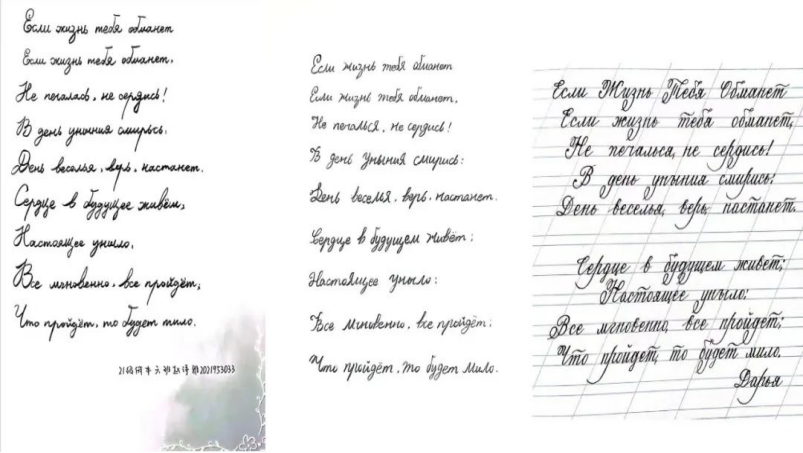 Если жизнь тебя обманет
Если жизнь тебя обманет,
Не печалась, не сердись!
В день уныния смирьсь.
День веселья, верь, настанет.
Сердце в будущее живём;
Настоящее уныло,
Все мгновенно, все пройдёт;
Что пройдёт, то будет мило.
2021933033
Если жизнь тебя обманет
Если жизнь тебя обманет,
Не печалься, не сердись!
В день уныния смирись:
День веселья, верь, настанет.
Сердце в будущем живёт;
Настоящее уныло:
Все мгновенно, все пройдёт;
Что пройдёт, то будет мило.
Если Жизнь Тебя Обманет
Если жизнь тебя обманет,
Не печалься, не сердись!
В день уныния смирись:
День веселья, верь, настанет.
Сердце в будущем живет;
Настоящее уныло:
Все мгновенно, все пройдет;
Что пройдет, то будет мило.
Дарья